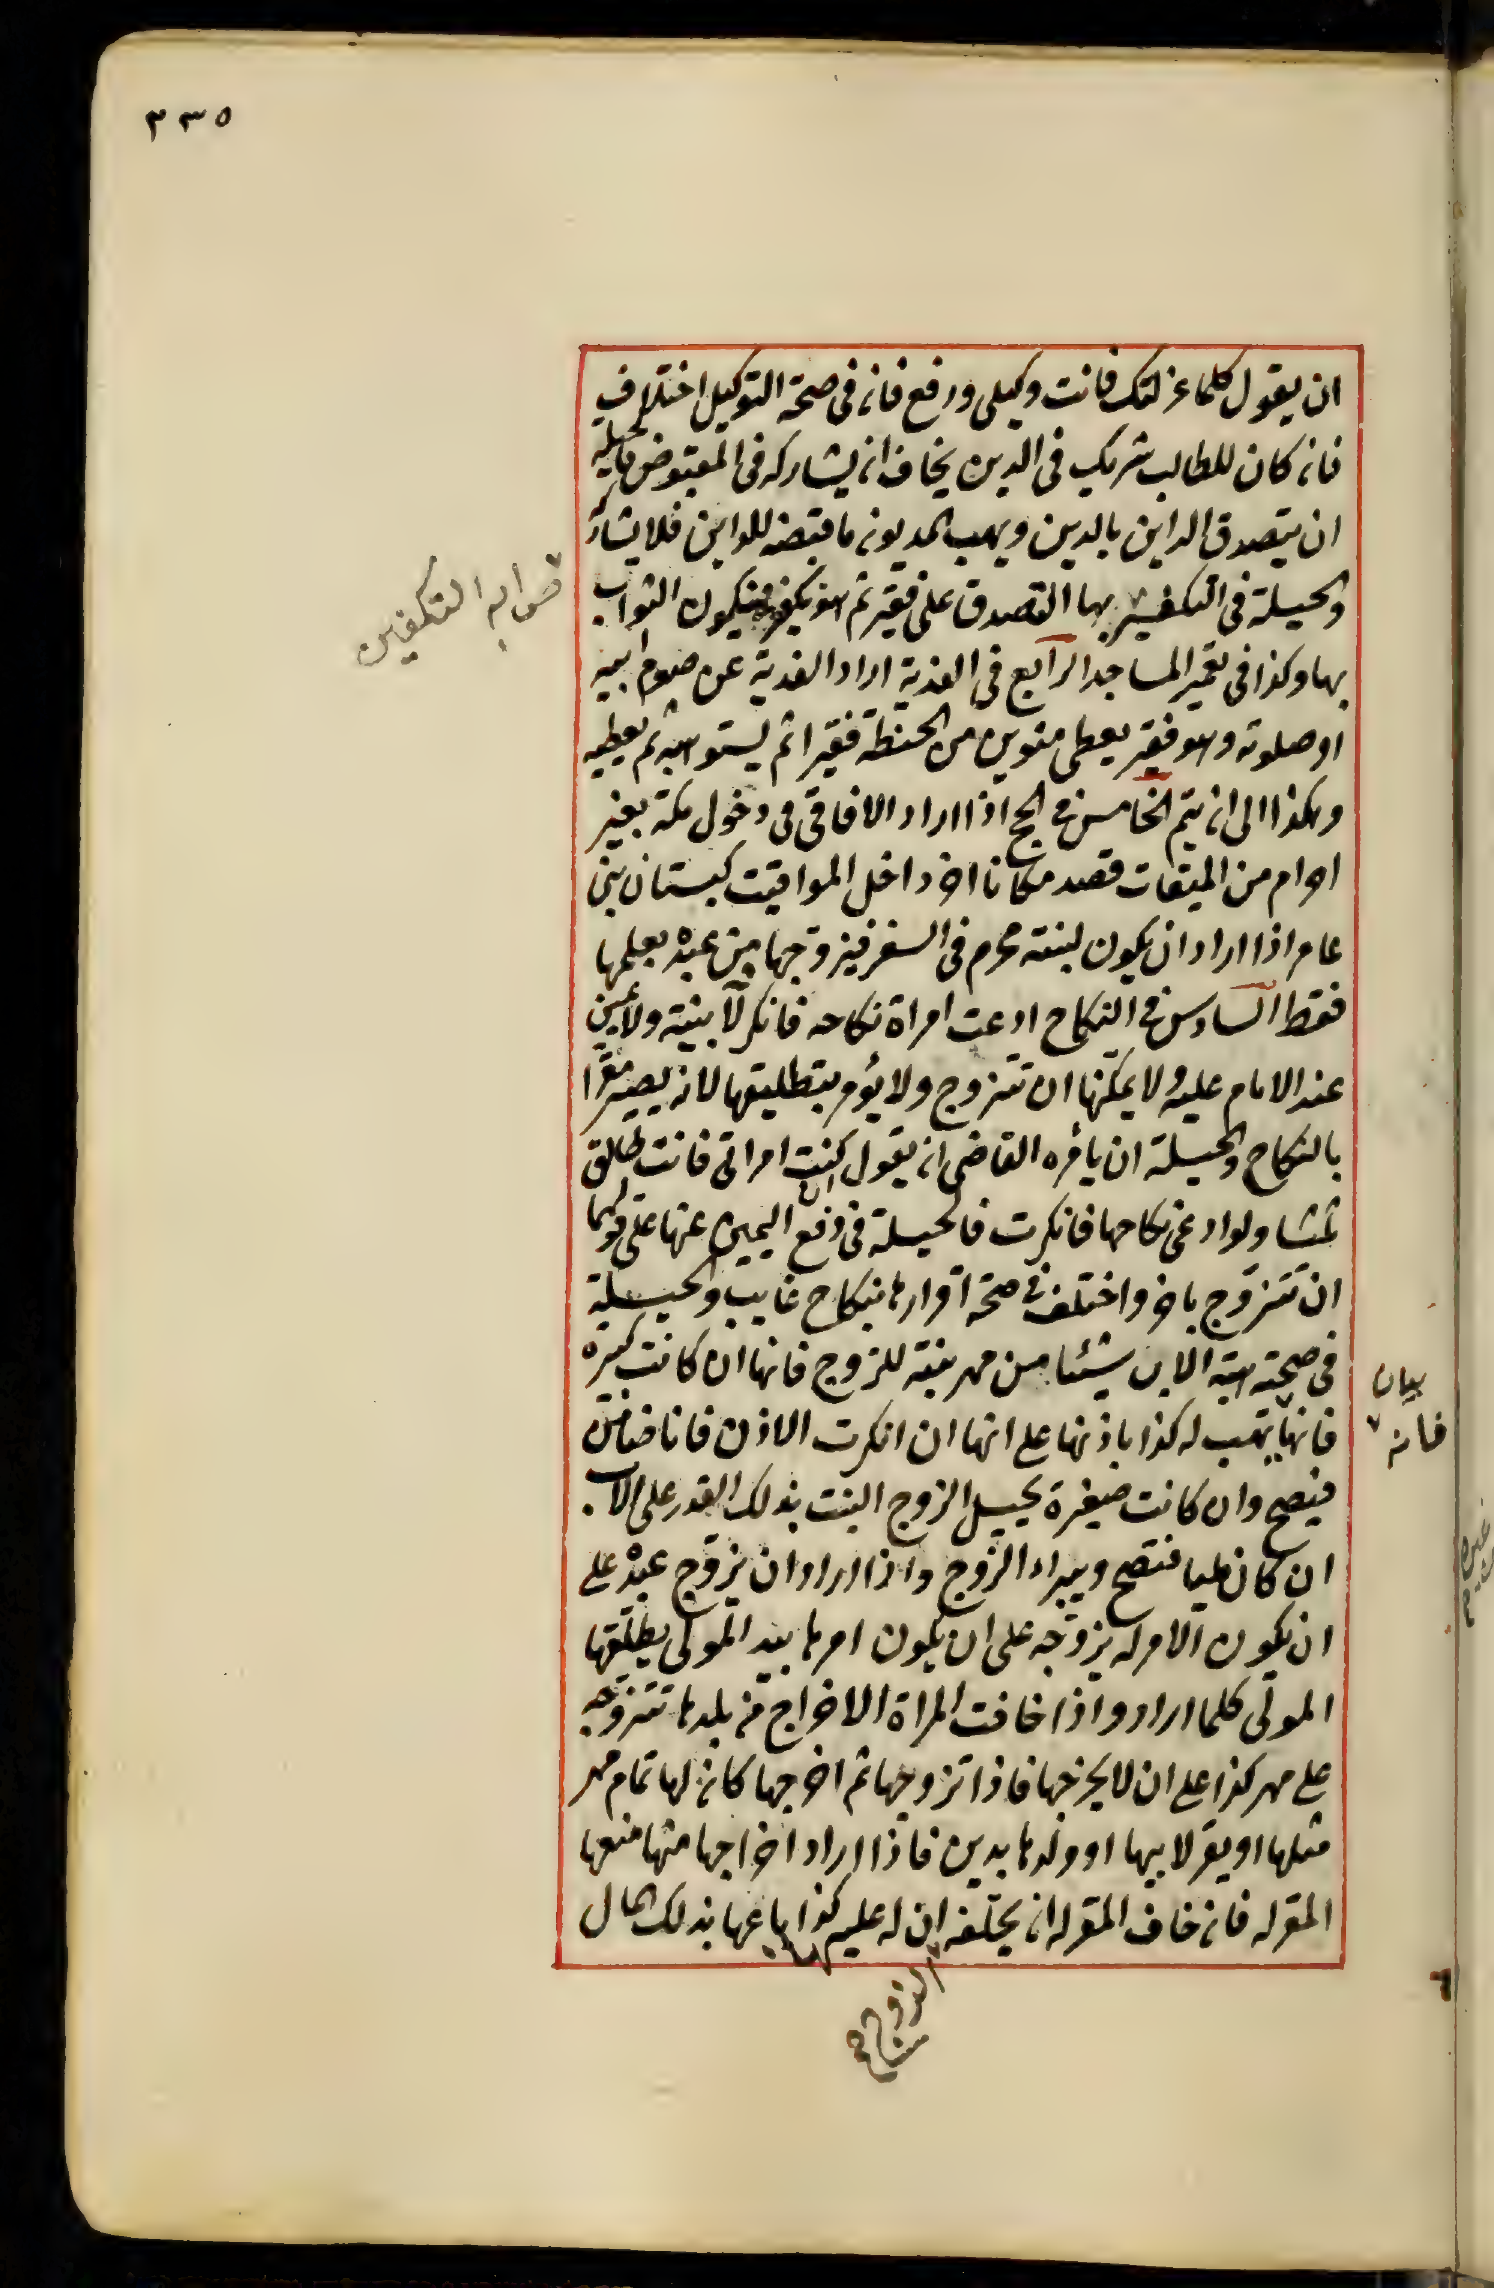 ٣٣٥
ان يقول كلما عزلتك فانت وكيلى ودفع فانه فى صحة التوكيل اختلاف
فانه كان للطالب شريك فى الدين يخاف انه يشاركه فى المقبوض فالحيلة
ان يتصدق الداين بالدين ويهب المديونه ما قبضه للداين فلا يشاركه
والحيلة فى التكفير بها التصدق على فقير ثم هو يكفن فيكون الثواب
بها وكذا فى تعمير المساجد الرابع فى الفدية اراد الفدية عن صوم ابيه
او صلوته وهو فقير يعطى منوين من الحنطة فقيرا ثم يستوهبه ثم يعطيه
وهكذا الى انه يتم الخامس فى الحج اذا اراد الافاقى دخول مكة بغير
احرام من الميقات قصد مكانا اخر داخل المواقيت كبستان بنى
عامر اذا اراد ان يكون لبنته محرم فى السفر فيزوجها من عبده بعلمها
فقط السادس فى النكاح ادعت امراة نكاحه فانكر لا بينة ولا يمين
عند الامام عليه ولا يمكنها ان تتزوج ولا يؤمر بتطليقها لانه يصير مقرا
بالنكاح والحيلة ان يأمره القاضى انه يقول ان كنت امراتى فانت طالق
ثلثا ولو ادعى نكاحها فانكرت فالحيلة فى دفع اليمين عنها على قولهما
ان تتزوج باخر واختلف فى صحة اقرارها بنكاح غايب والحيلة
فى صحة هبة الاب شيئا من مهر بنته للزوج فانها ان كانت كبيرة
فانها يهب له كذا باذنها على انها ان انكرت الاذن فانا ضامن
فيصح وان كانت صغيرة يحيل الزوج البنت بذلك القدر على الاب
ان كان مليا فتصح ويبراء الزوج واذا اراد ان يزوج عبده على
ان يكون الامر له يزوجه على ان يكون امرها بيد المولى يطلقها
المولى كلما اراد واذا خافت المراة الاخراج من بلدها تتزوجه
على مهر كذا على ان لا يخرجها فاذا تزوجها ثم اخرجها كانه لها تمام مهر
مثلها او يقر لابيها او ولدها بدين فاذا اراد اخراجها منها منعها
المقر له فانه خاف المقر له انه يحلفه ان له عليه كذا باعها بذلك المال
التكفين
بيان
فانه
الزوج